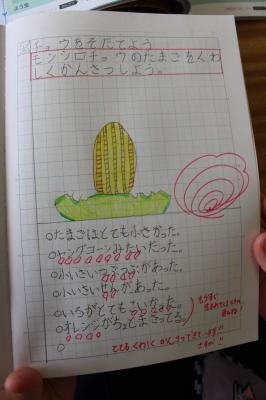 チョウをそだてよう
モンシロチョウのたまごをくわ
しくかんさつしよう。
○たまごはとても小さかった。
○ヤングコーンみたいだった。
○小いさいつぶつぶがあった。
○小いさいせんがあった。
○いろがとてもこいなった。
○オレンジがちょとまざってる。
○
もうすぐ
とてもくわしくかんさつできています!!
さすが!!